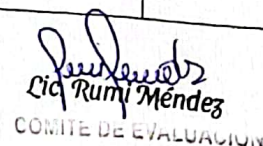 Lic Rumi Méndez
COMITE DE EVALUACION